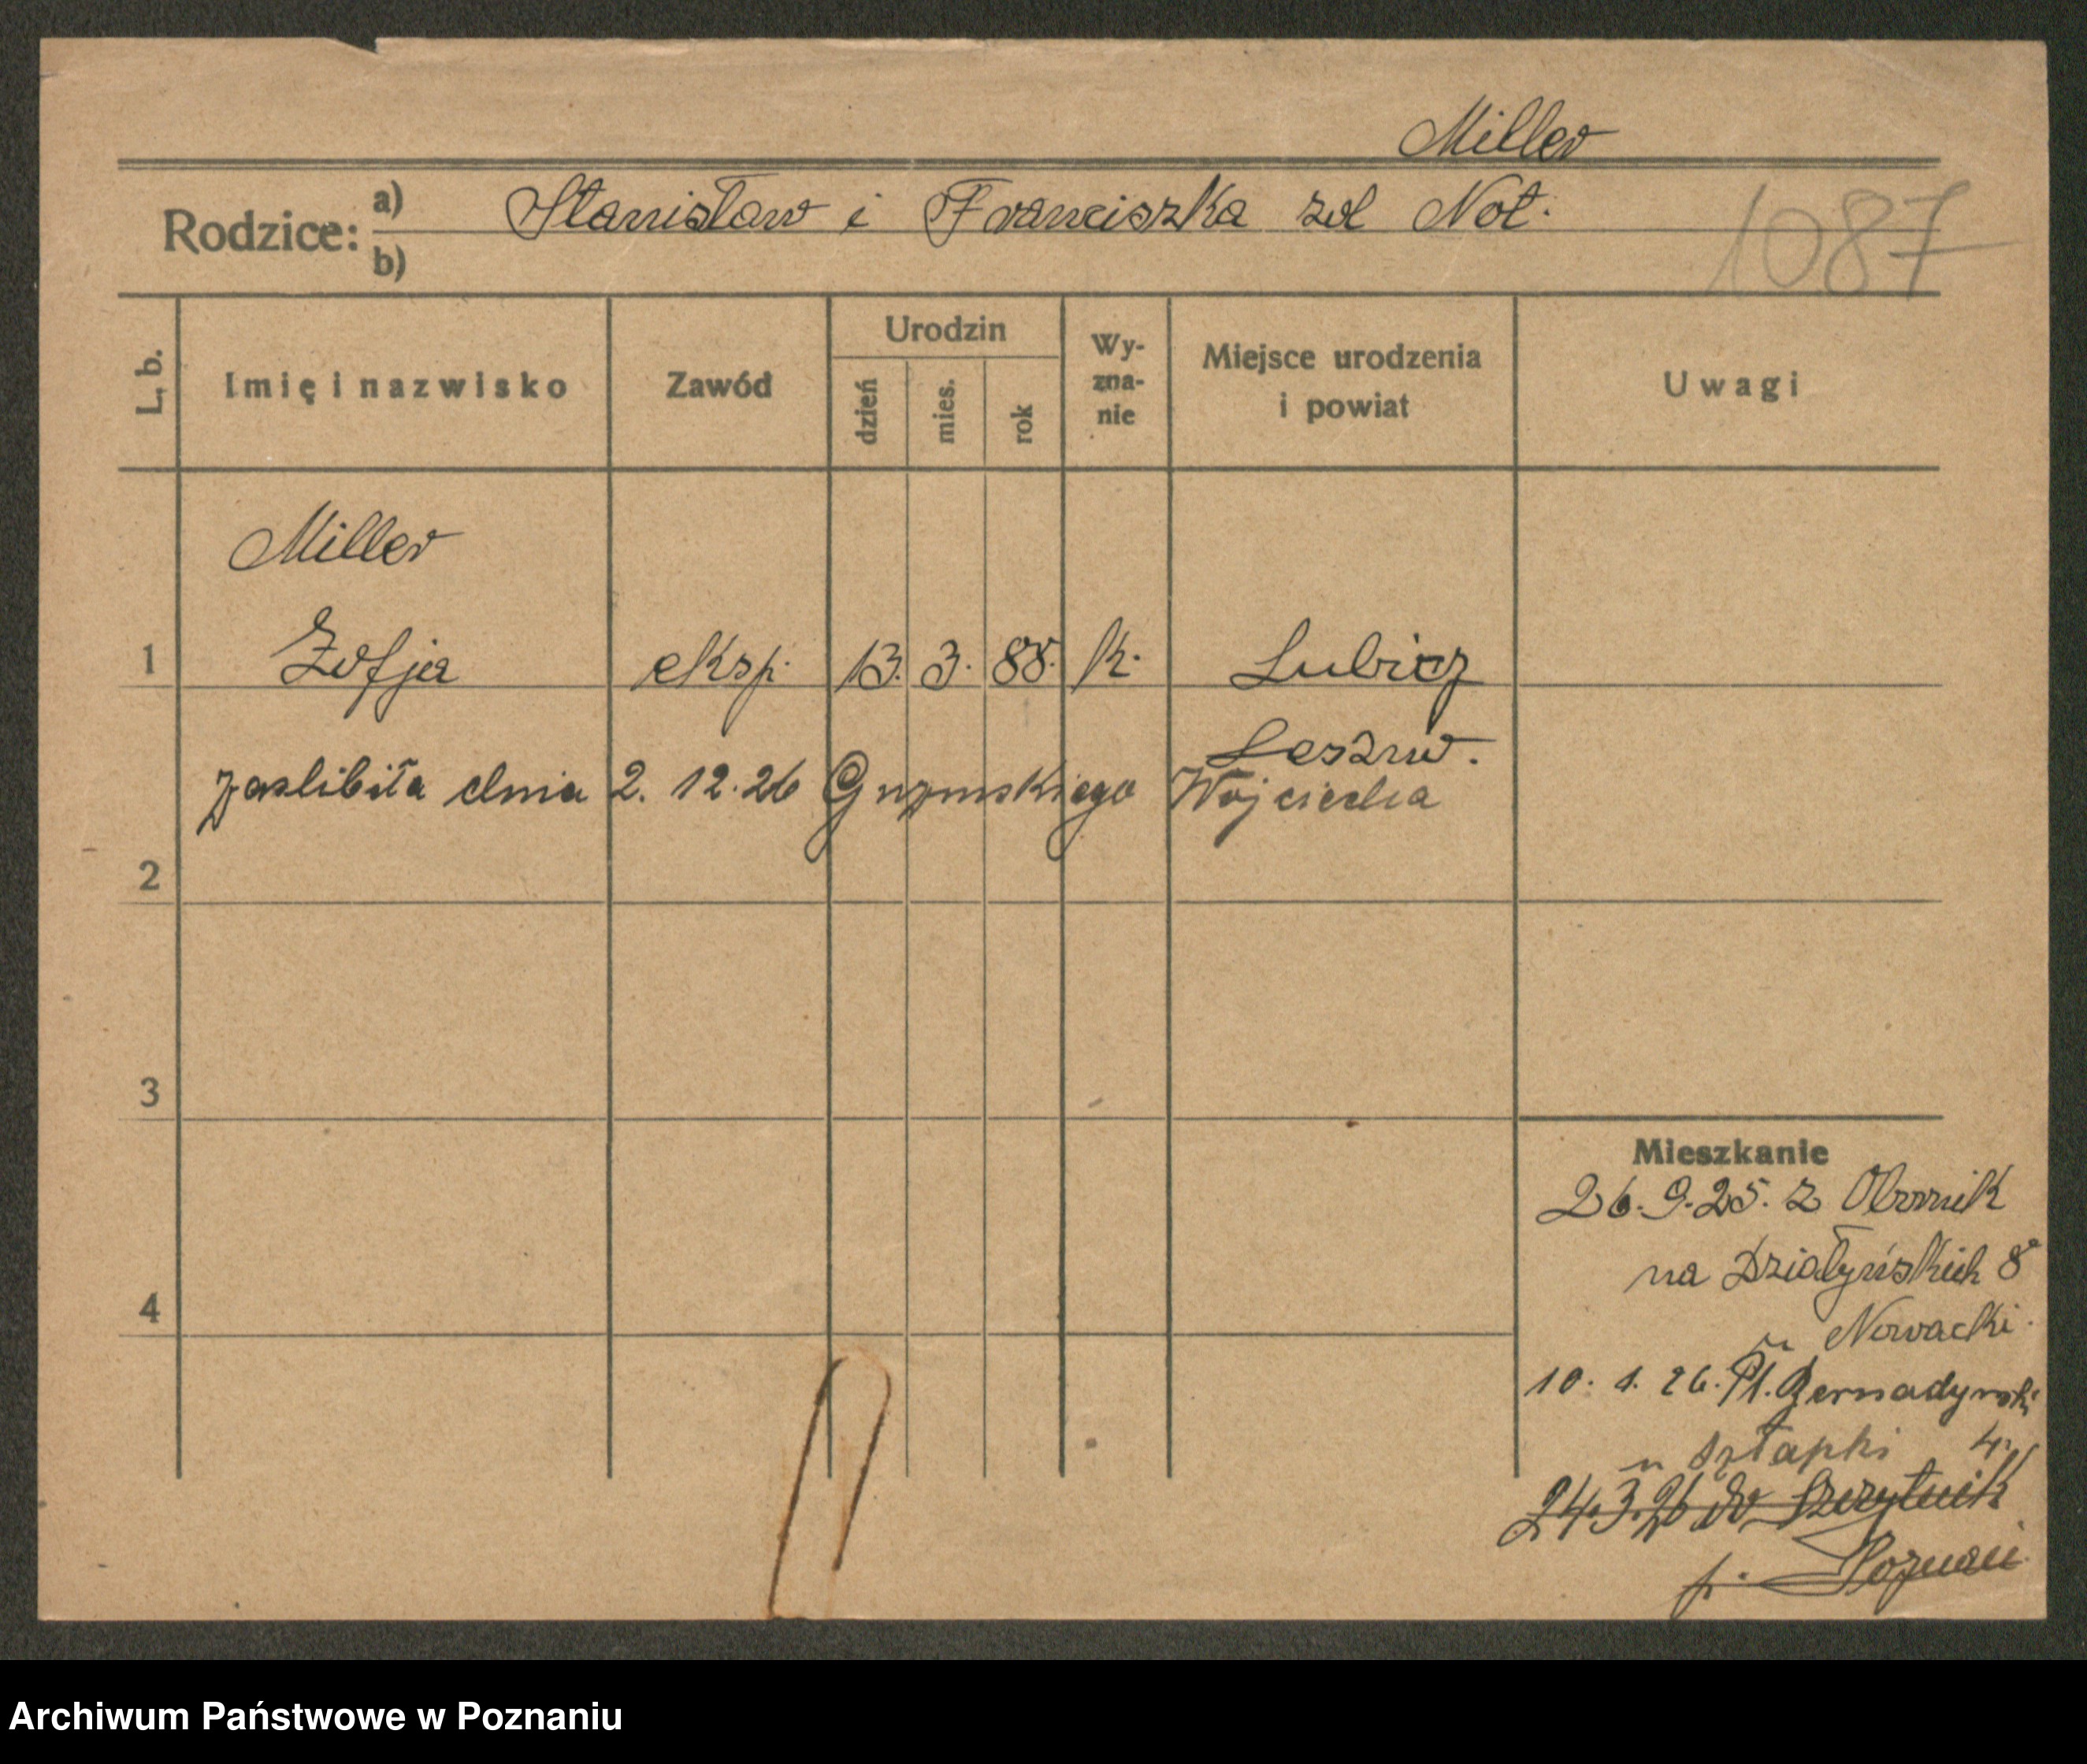 Miller
Rodzice: a) Stanisław i Franciszka zd Not.
b)
1087
L. b.
Imię i nazwisko
Zawód
Urodzin
dzień
mies.
rok
Wy-
zna-
nie
Miejsce urodzenia
i powiat
Uwagi
Miller
1 Zofja eksp. 13. 3. 88. k. Lubicz
zaslibiła dnia 2. 12. 26 Wojciecha
2
3
Mieszkanie
26. 9. 25. z Obornik
na Działyńskich 8
4
u Nowacki.
10. 1. 26. Pl. Bernadynski
u Sztapki 4.
24.3.26 do Szczytnik
p. Poznań
Archiwum Państwowe w Poznaniu